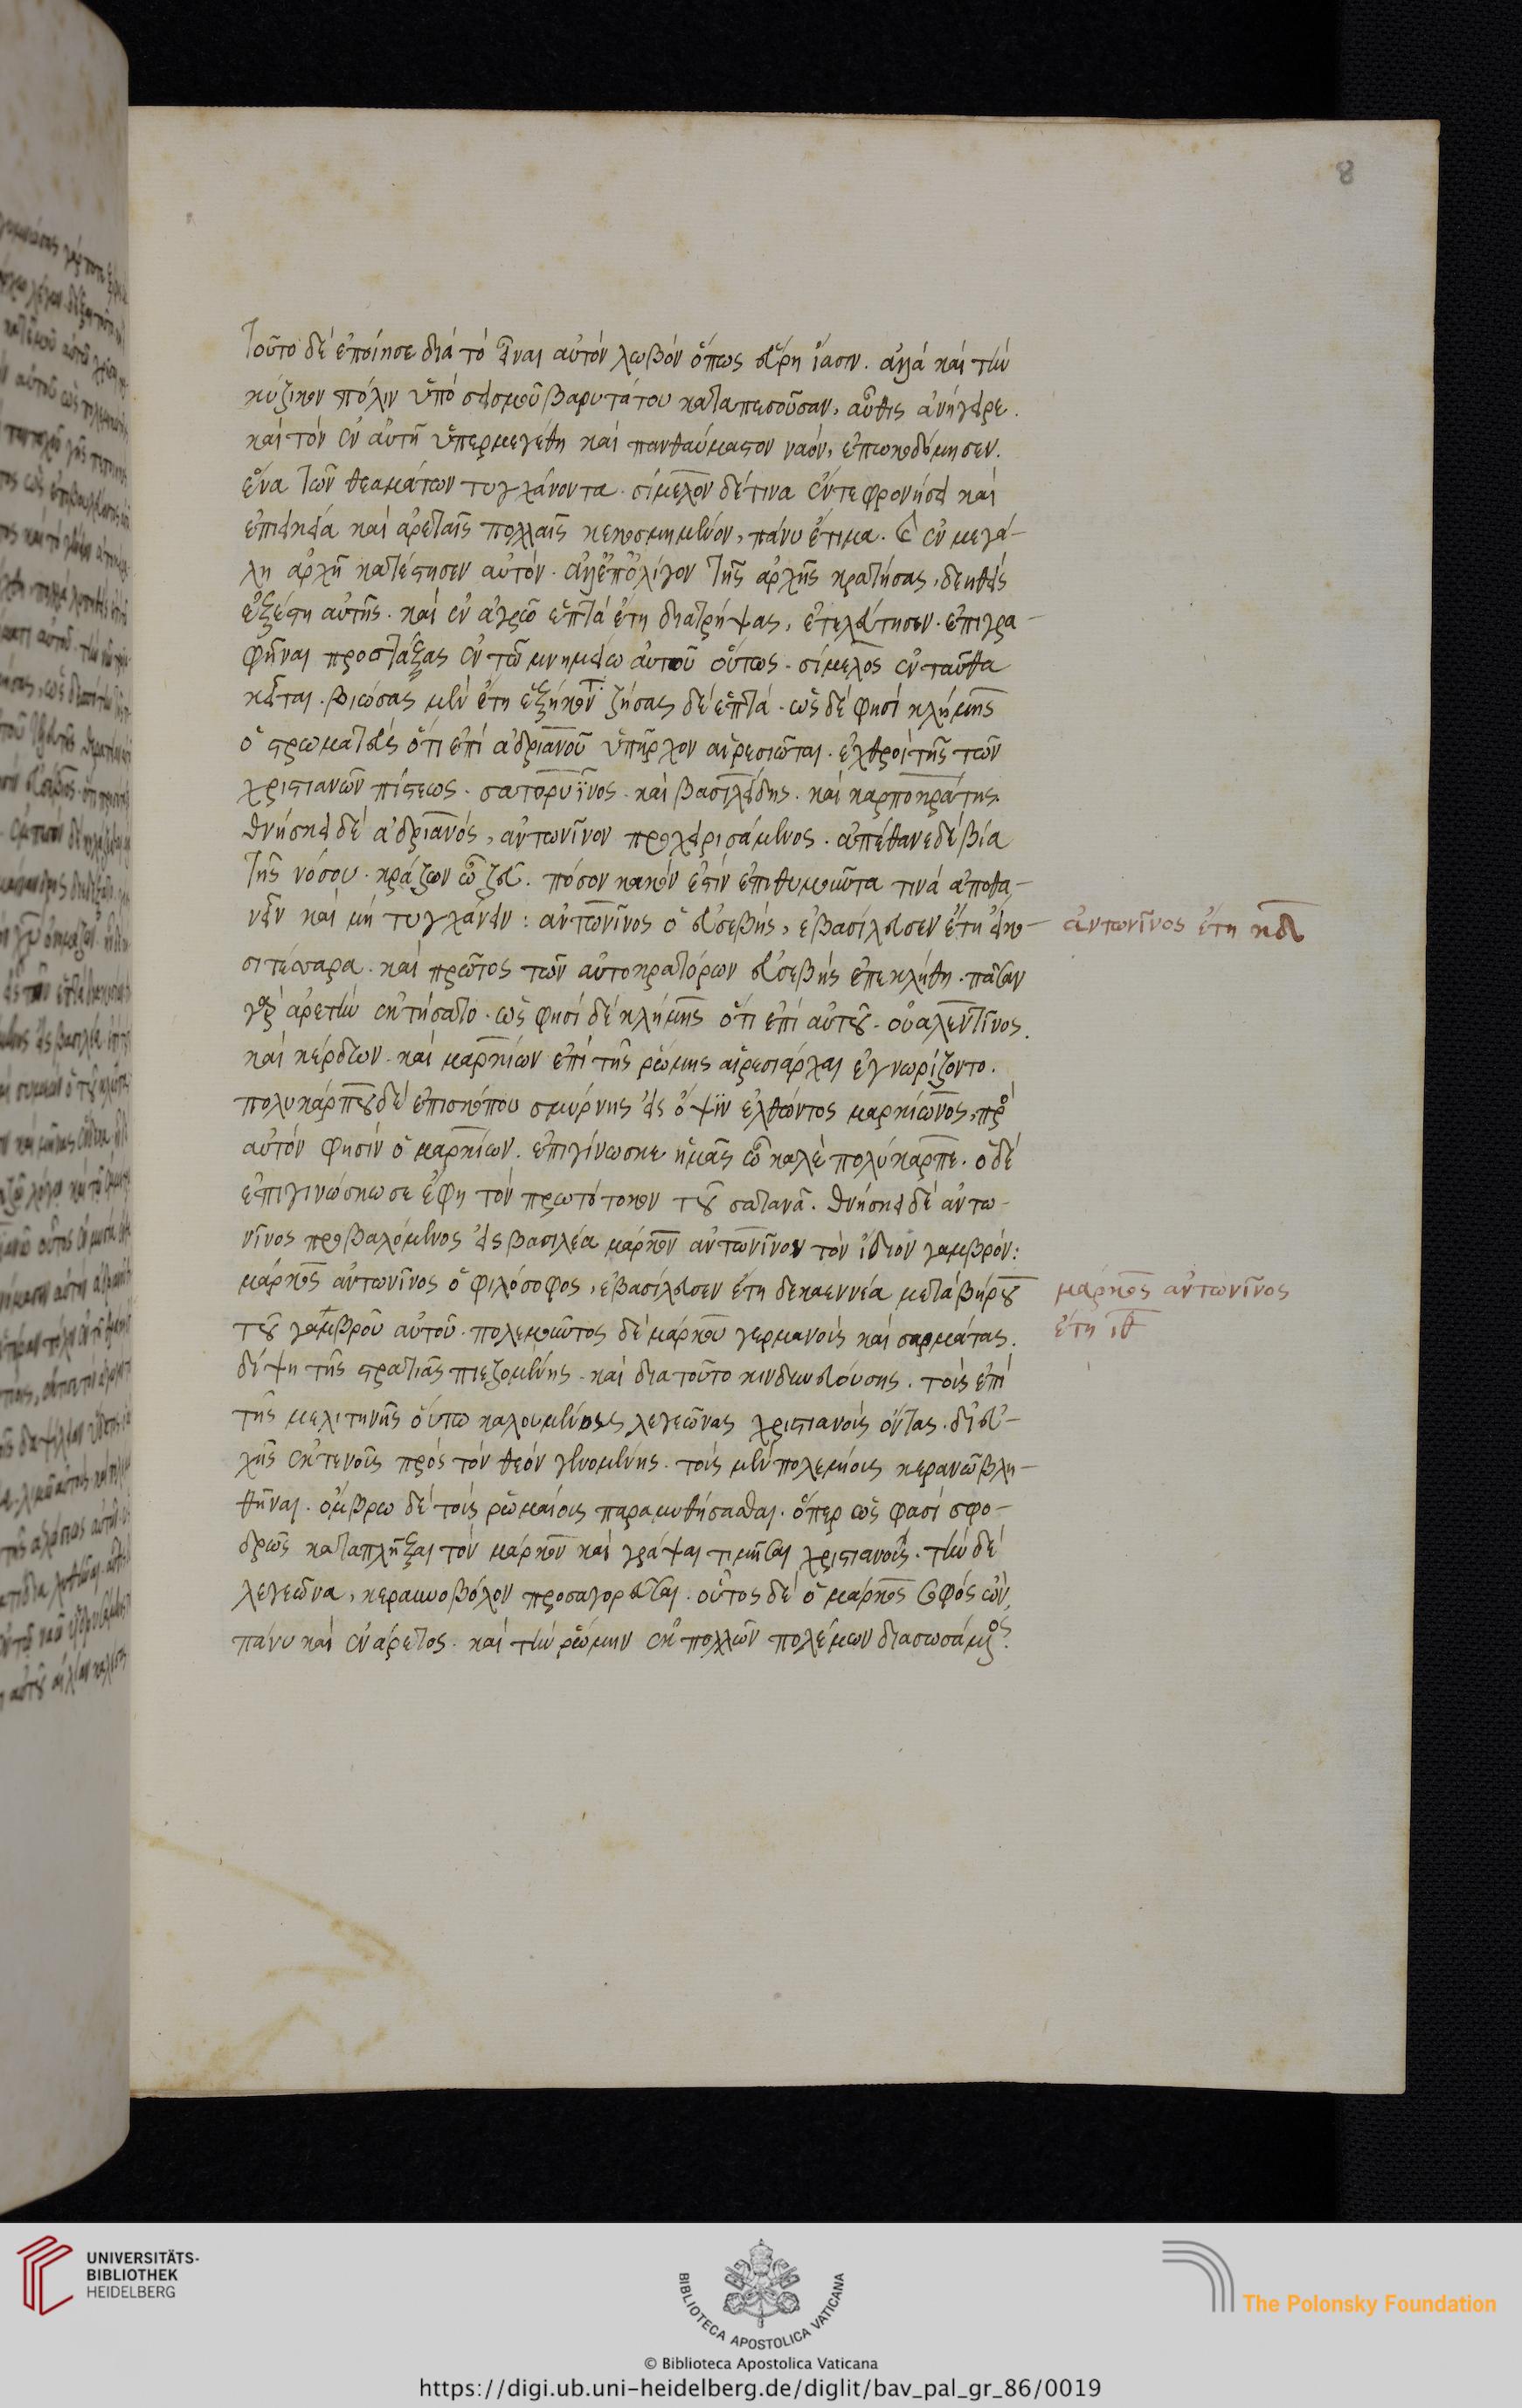 8
Τοῦτο δὲ ἐποίησε διὰ τὸ εἶναι αὐτὸν λωβὸν ὅπως εὕρη ἴασιν. ἀλλὰ καὶ τὴν
κύζικον πόλιν ὑπὸ σεισμοῦ βαρυτάτου καταπεσοῦσαν, αὖθις ἀνήγειρε.
καὶ τὸν ἐν αὐτῆ ὑπερμεγέθη καὶ πανθαύμαστον ναὸν, ἐπωκοδόμησεν.
ἕνα τῶν θεαμάτων τυγχάνοντα. σίμελχον δέ τινα ἔν τε φρονήσει καὶ
ἐπιεικεία καὶ ἀρεταῖς πολλαῖς κεκοσμημένον, πάνυ ἐτίμα. καὶ ἐν μεγά-
λη ἀρχῆ κατέστησεν αὐτόν. ἀλλ' ἐπ' ὀλίγον τῆς ἀρχῆς κρατήσας, δεηθεὶς
ἐξέστη αὐτῆς. καὶ ἐν ἀγρῶ ἑπτὰ ἔτη διατρήψας, ἐτελεύτησεν. ἐπιγρα-
φῆναι προστάξας ἐν τῶ μνημείω αὐτοῦ οὕτως. σίμελχος ἐνταῦθα
κεῖται. βιώσας μὲν ἔτη ἑξήκοντ ζήσας δὲ ἑπτά. ὡς δέ φησὶ κλήμης
ὁ στρωματεὺς ὅτι ἐπὶ ἀδριανοῦ ὑπῆρχον αἱρεσιῶται. ἐχθροὶ τῆς τῶν
χριστιανῶν πίστεως. σατορνῖνος. καὶ βασιλείδης. καὶ καρποκράτης.
θνήσκει δὲ ἀδριανὸς, ἀντωνῖνον προχειρισάμενος. ἀπέθανε δὲ βία
τῆς νόσου. κράζων ὦ ζεῦ. πόσον κακόν ἐστιν ἐπιθυμοῦντα τινὰ ἀποθα-
νεῖν καὶ μὴ τυγχάνειν: ἀντωνῖνος ὁ εὐσεβὴς, ἐβασίλευσεν ἔτη εἴκο-
ἀντωνῖνος ἔτη κδ
σιτέσσαρα. καὶ πρῶτος τῶν αὐτοκρατόρων εὐσεβὴς ἐπεκλήθη. πᾶσαν
γὰρ ἀρετὴν ἐκτήσατο. ὥς φησὶ δὲ κλήμης ὅτι ἐπὶ αὐτοῦ. οὐαλεντῖνος.
καὶ κέρδων. καὶ μαρκίων ἐπὶ τῆς ῥώμης αἱρεσιάρχαι ἐγνωρίζοντο.
πολυκάρπου δὲ ἐπισκόπου σμύρνης εἰς ὄψϊν ἐλθώντος μαρκίωνος, πρὸ
αὐτόν φησὶν ὁ μαρκίων. ἐπιγίνωσκε ἡμᾶς ὦ καλὲ πολύκαρπε. ὁ δὲ
ἐπιγινώσκω σε ἔφη τὸν πρωτότοκον τοῦ σατανᾶ. θνήσκει δὲ ἀντω-
νῖνος προβαλόμενος εἰς βασιλέα μάρκον ἀντωνῖνον τὸν ἴδιον γαμβρόν:
μάρκος ἀντωνῖνος ὁ φιλόσοφος, ἐβασίλευσεν ἔτη δεκαεννέα μετὰ βήρου
μάρκος ἀντωνῖνος
ἔτη ιθ
τοῦ γαμβροῦ αὐτοῦ. πολεμοῦντος δὲ μάρκου γερμανοὺς καὶ σαρμάτας.
δίψη τῆς στρατιᾶς πιεζομένης. καὶ διατοῦτο κινδυνευούσης. τοὺς ἐπὶ
τῆς μελιτηνῆς οὕπω καλουμένους λεγεῶνας χριστιανοὺς ὄντας. δι' εὐ-
χῆς ἐκτενοῦς πρὸς τὸν θεὸν γενομένης. τοὺς μὲν πολεμίους κεραυνῶ βλη-
θῆναι. ὄμβρω δὲ τοὺς ῥωμαίους παραμυθήσασθαι. ὅπερ ὥς φασὶ σφο-
δρῶς καταπλῆξαι τὸν μάρκον καὶ γράψαι τιμῆσαι χριστιανούς. τὴν δὲ
λεγεῶνα, κεραυνοβόλον προσαγορεῦσαι. οὗτος δὲ ὁ μάρκος σοφὸς ὢν,
πάνυ καὶ ἐνάρετος. καὶ τὴν ῥώμην ἐκ πολλῶν πολέμων διασωσάμενος.
UNIVERSITÄTS-
BIBLIOTHEK
HEIDELBERG
BIBLIOTECA APOSTOLICA VATICANA
The Polonsky Foundation
© Biblioteca Apostolica Vaticana
https://digi.ub.uni-heidelberg.de/diglit/bav_pal_gr_86/0019